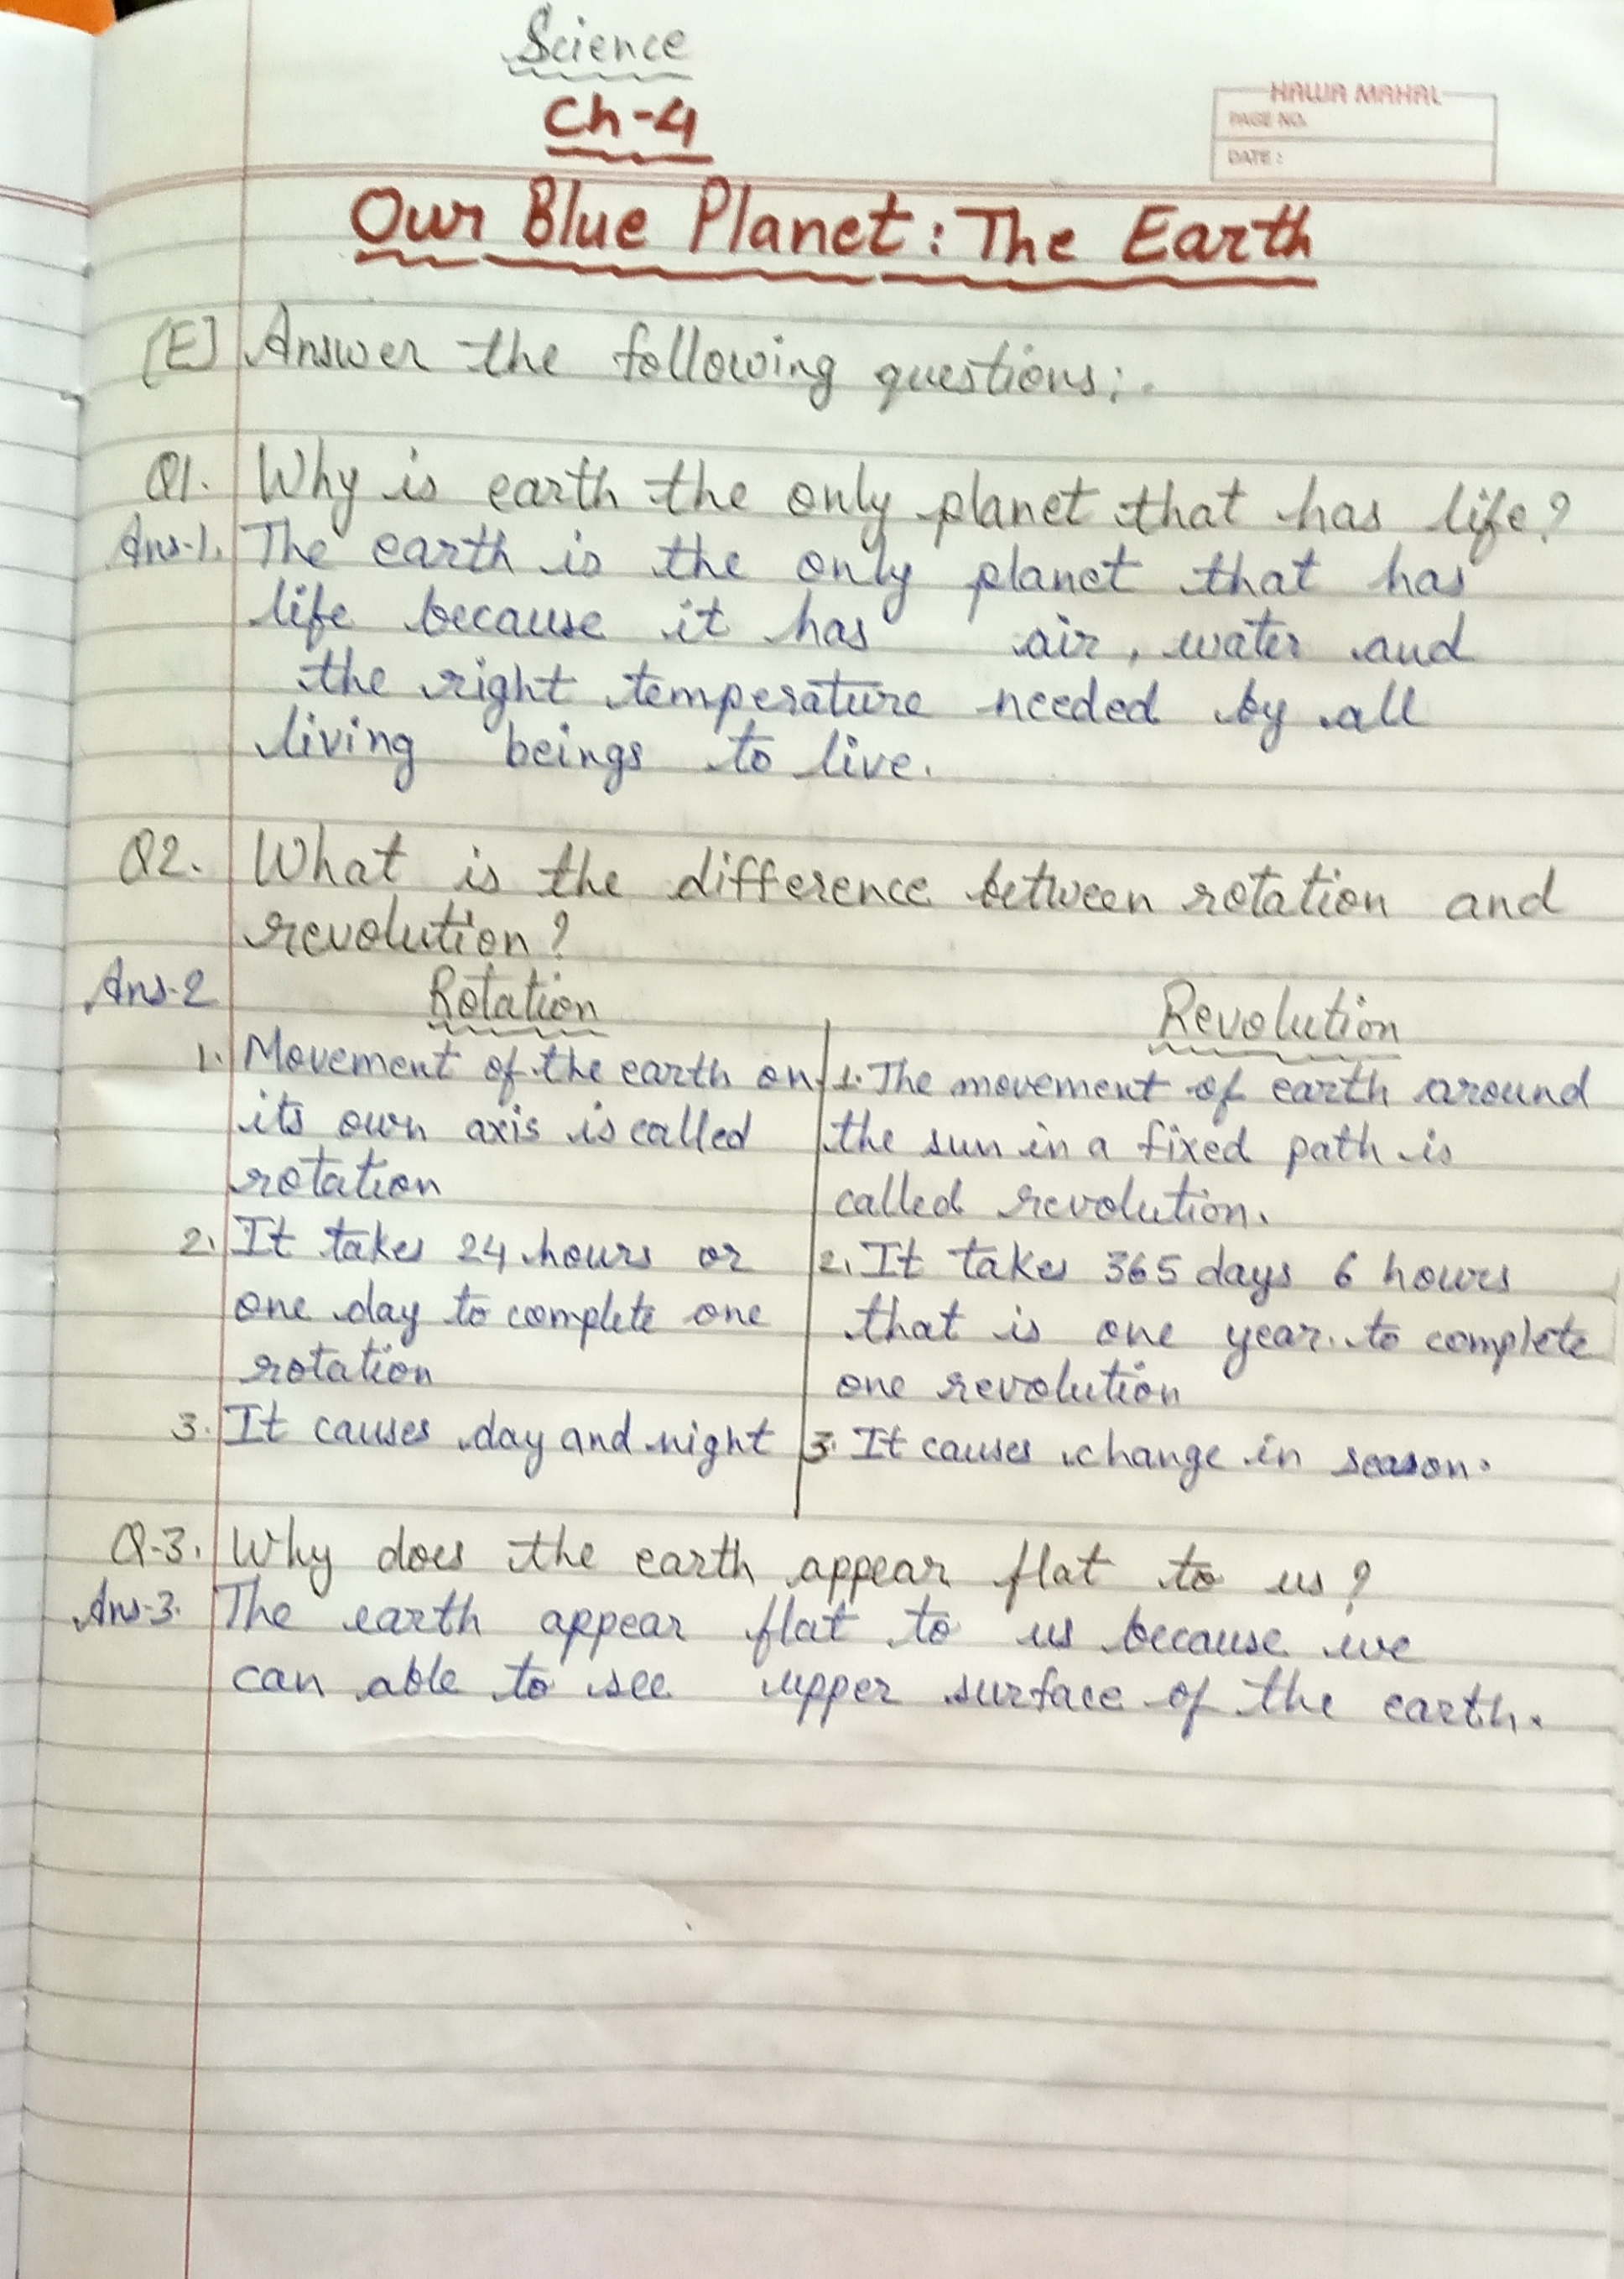 Science
Ch-4
HAWA MAHAL
PAGE NO.
DATE :
Our Blue Planet : The Earth
[E] Answer the following questions:-
Q1. Why is earth the only planet that has life?
Ans-1. The earth is the only planet that has
life because it has air, water and
the right temperature needed by all
living beings to live.
Q2. What is the difference between rotation and
revolution?
Ans-2 Rotation
1. Movement of the earth on
its own axis is called
rotation
2. It takes 24 hours or
one day to complete one
rotation
3. It causes day and night
Revolution
1. The movement of earth around
the sun in a fixed path is
called revolution.
2. It takes 365 days 6 hours
that is one year to complete
one revolution
3. It causes change in season.
Q-3. Why does the earth appear flat to us?
Ans-3. The earth appear flat to us because we
can able to see upper surface of the earth.